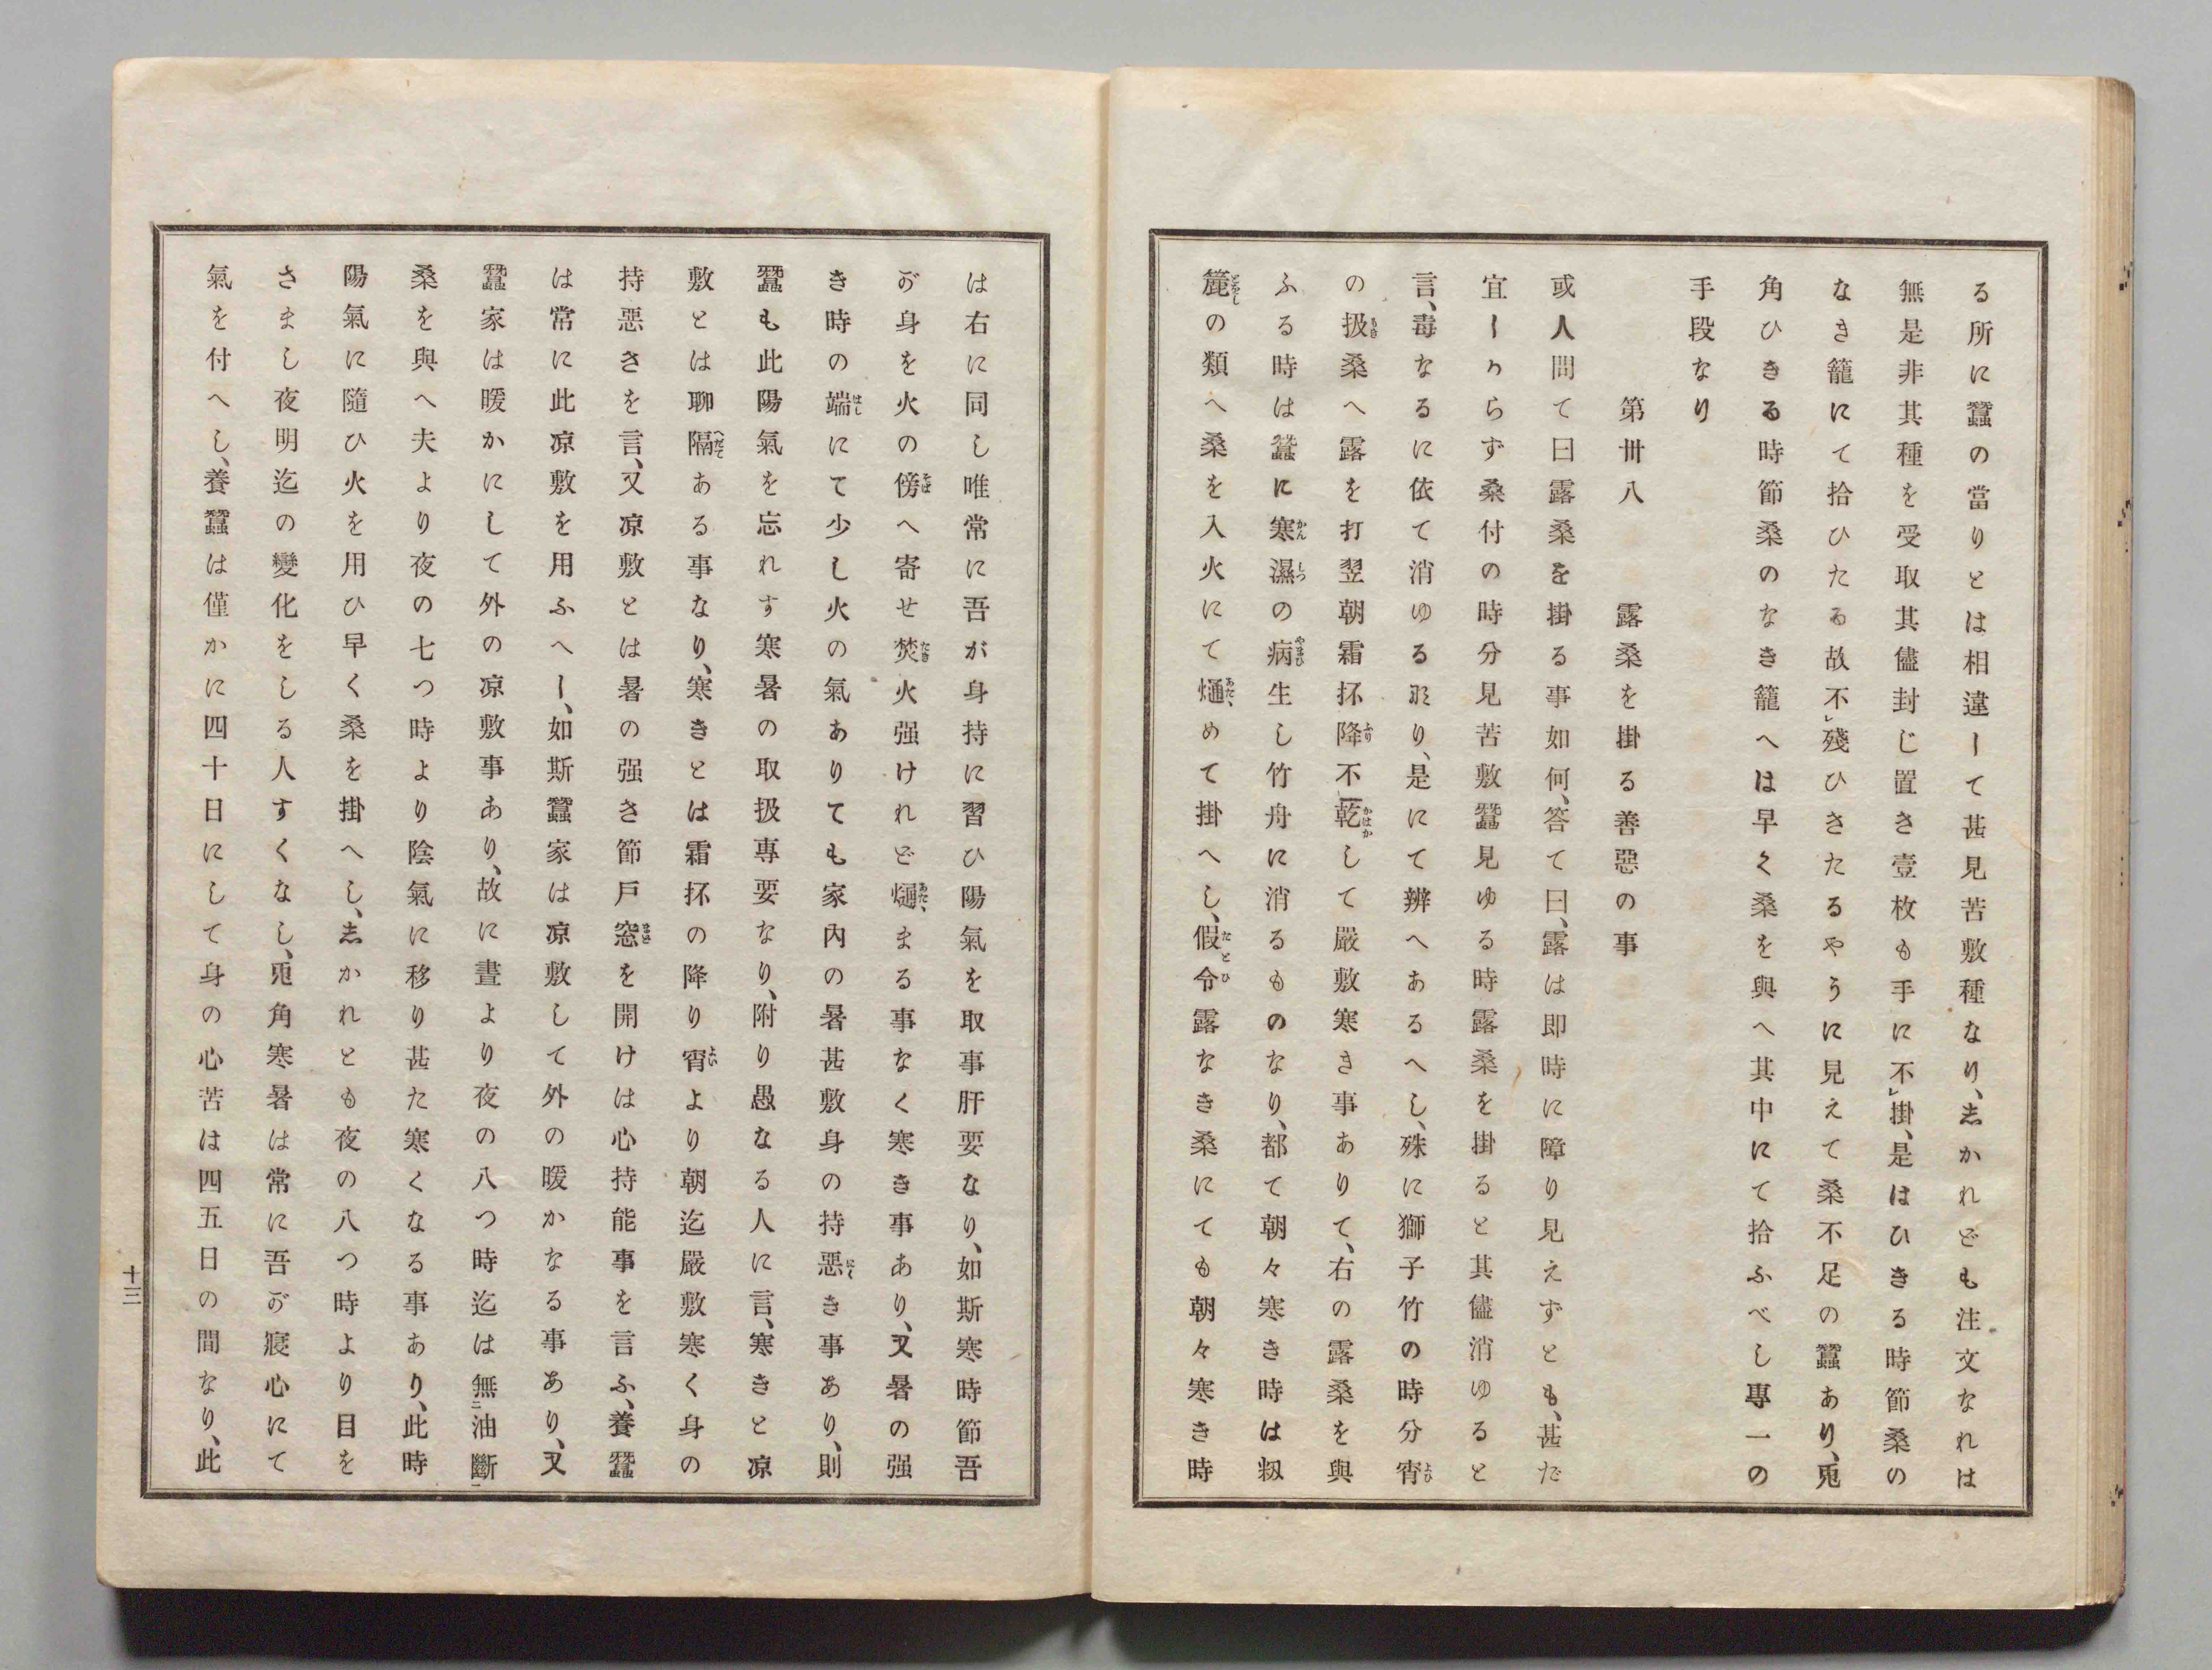 る所に蠶の當りとは相違して甚見苦敷種なり、志かれども注文なれは
無是非其種を受取其儘封じ置き壹枚も手に不レ掛、是はひきる時節桑の
なき籠にて拾ひたる故不レ殘ひきたるやうに見えて桑不足の蠶あり、兎
角ひきる時節桑のなき籠へは早く桑を與へ其中にて拾ふべし專一の
手段なり
第卅八　露桑を掛る善惡の事
或人問て曰露桑を掛る事如何、答て曰、露は即時に障り見えずとも、甚だ
宜しからず桑付の時分見苦敷蠶見ゆる時露桑を掛ると其儘消ゆると
言、毒なるに依て消ゆるなり、是にて辨へあるへし、殊に獅子竹の時分宵
の扱桑へ露を打翌朝霜抔降不レ乾して嚴敷寒き事ありて、右の露桑を與
ふる時は蠶に寒濕の病生し竹舟に消るものなり、都て朝々寒き時は籾
簏の類へ桑を入火にて煄めて掛へし、假令露なき桑にても朝々寒き時
は右に同し唯常に吾が身持に習ひ陽氣を取事肝要なり、如斯寒時節吾
が身を火の傍へ寄せ焚火强けれど煄まる事なく寒き事あり、又暑の强
き時の端にて少し火の氣ありても家內の暑甚敷身の持惡き事あり、則
蠶も此陽氣を忘れす寒暑の取扱專要なり、附り愚なる人に言、寒きと凉
敷とは聊隔ある事なり、寒きとは霜抔の降り宵より朝迄嚴敷寒く身の
持惡さを言、又凉敷とは暑の强さ節戶窓を開けは心持能事を言ふ、養蠶
は常に此凉敷を用ふへし、如斯蠶家は凉敷して外の暖かなる事あり、又
蠶家は暖かにして外の凉敷事あり、故に晝より夜の八つ時迄は無二油斷一
桑を與へ夫より夜の七つ時より陰氣に移り甚た寒くなる事あり、此時
陽氣に隨ひ火を用ひ早く桑を掛へし、志かれとも夜の八つ時より目を
さまし夜明迄の變化をしる人すくなし、兎角寒暑は常に吾が寢心にて
氣を付へし、養蠶は僅かに四十日にして身の心苦は四五日の間なり、此
十三